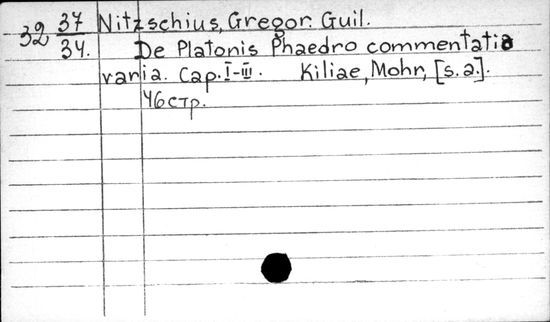 32 37/34. Nitzschius, Gregor. Guil.
De Platonis Phaedro commentatio
varia. Cap. I-III. Kiliae, Mohr, [s. a.].
46 стр.